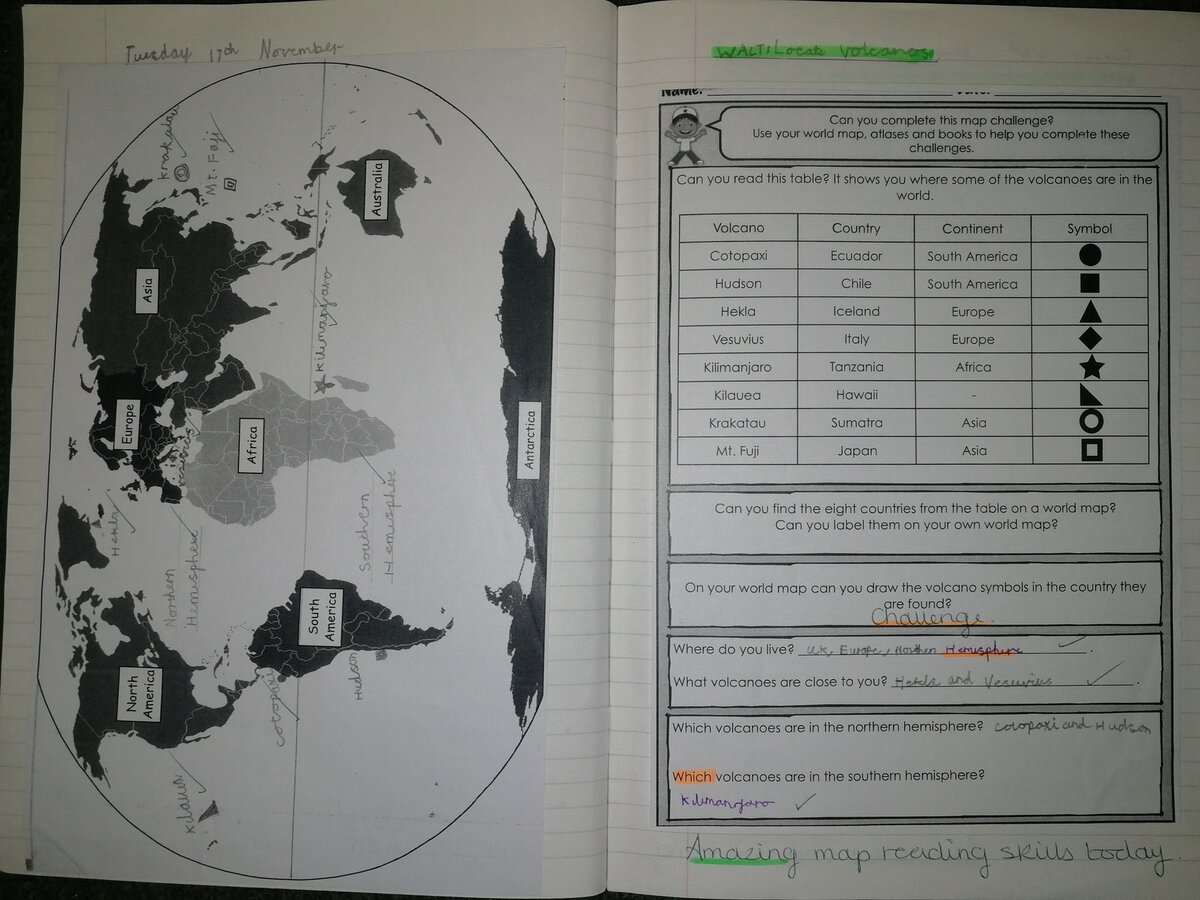 Tuesday 17th November
Krakatau
Mt. Fuji
Australia
Asia
Kilimanjaro
Europe
Africa
Antarctica
Hekla
Northern
Hemisphere
Southern
Hemisphere
South
America
North
America
Cotopaxi
Hudson
Kilauea
WALT: Locate volcanos
Name:
Can you complete this map challenge?
Use your world map, atlases and books to help you complete these
challenges.
Can you read this table? It shows you where some of the volcanoes are in the
world.
Volcano Country Continent Symbol
Cotopaxi Ecuador South America
Hudson Chile South America
Hekla Iceland Europe
Vesuvius Italy Europe
Kilimanjaro Tanzania Africa
Kilauea Hawaii -
Krakatau Sumatra Asia
Mt. Fuji Japan Asia
Can you find the eight countries from the table on a world map?
Can you label them on your own world map?
On your world map can you draw the volcano symbols in the country they
are found?
Challenge.
Where do you live? UK, Europe, Northen Hemisphere.
What volcanoes are close to you? Hekla and Vesuvius.
Which volcanoes are in the northern hemisphere? Cotopaxi and Hudson
Which volcanoes are in the southern hemisphere?
Kilimanjaro
Amazing map reading skills today.